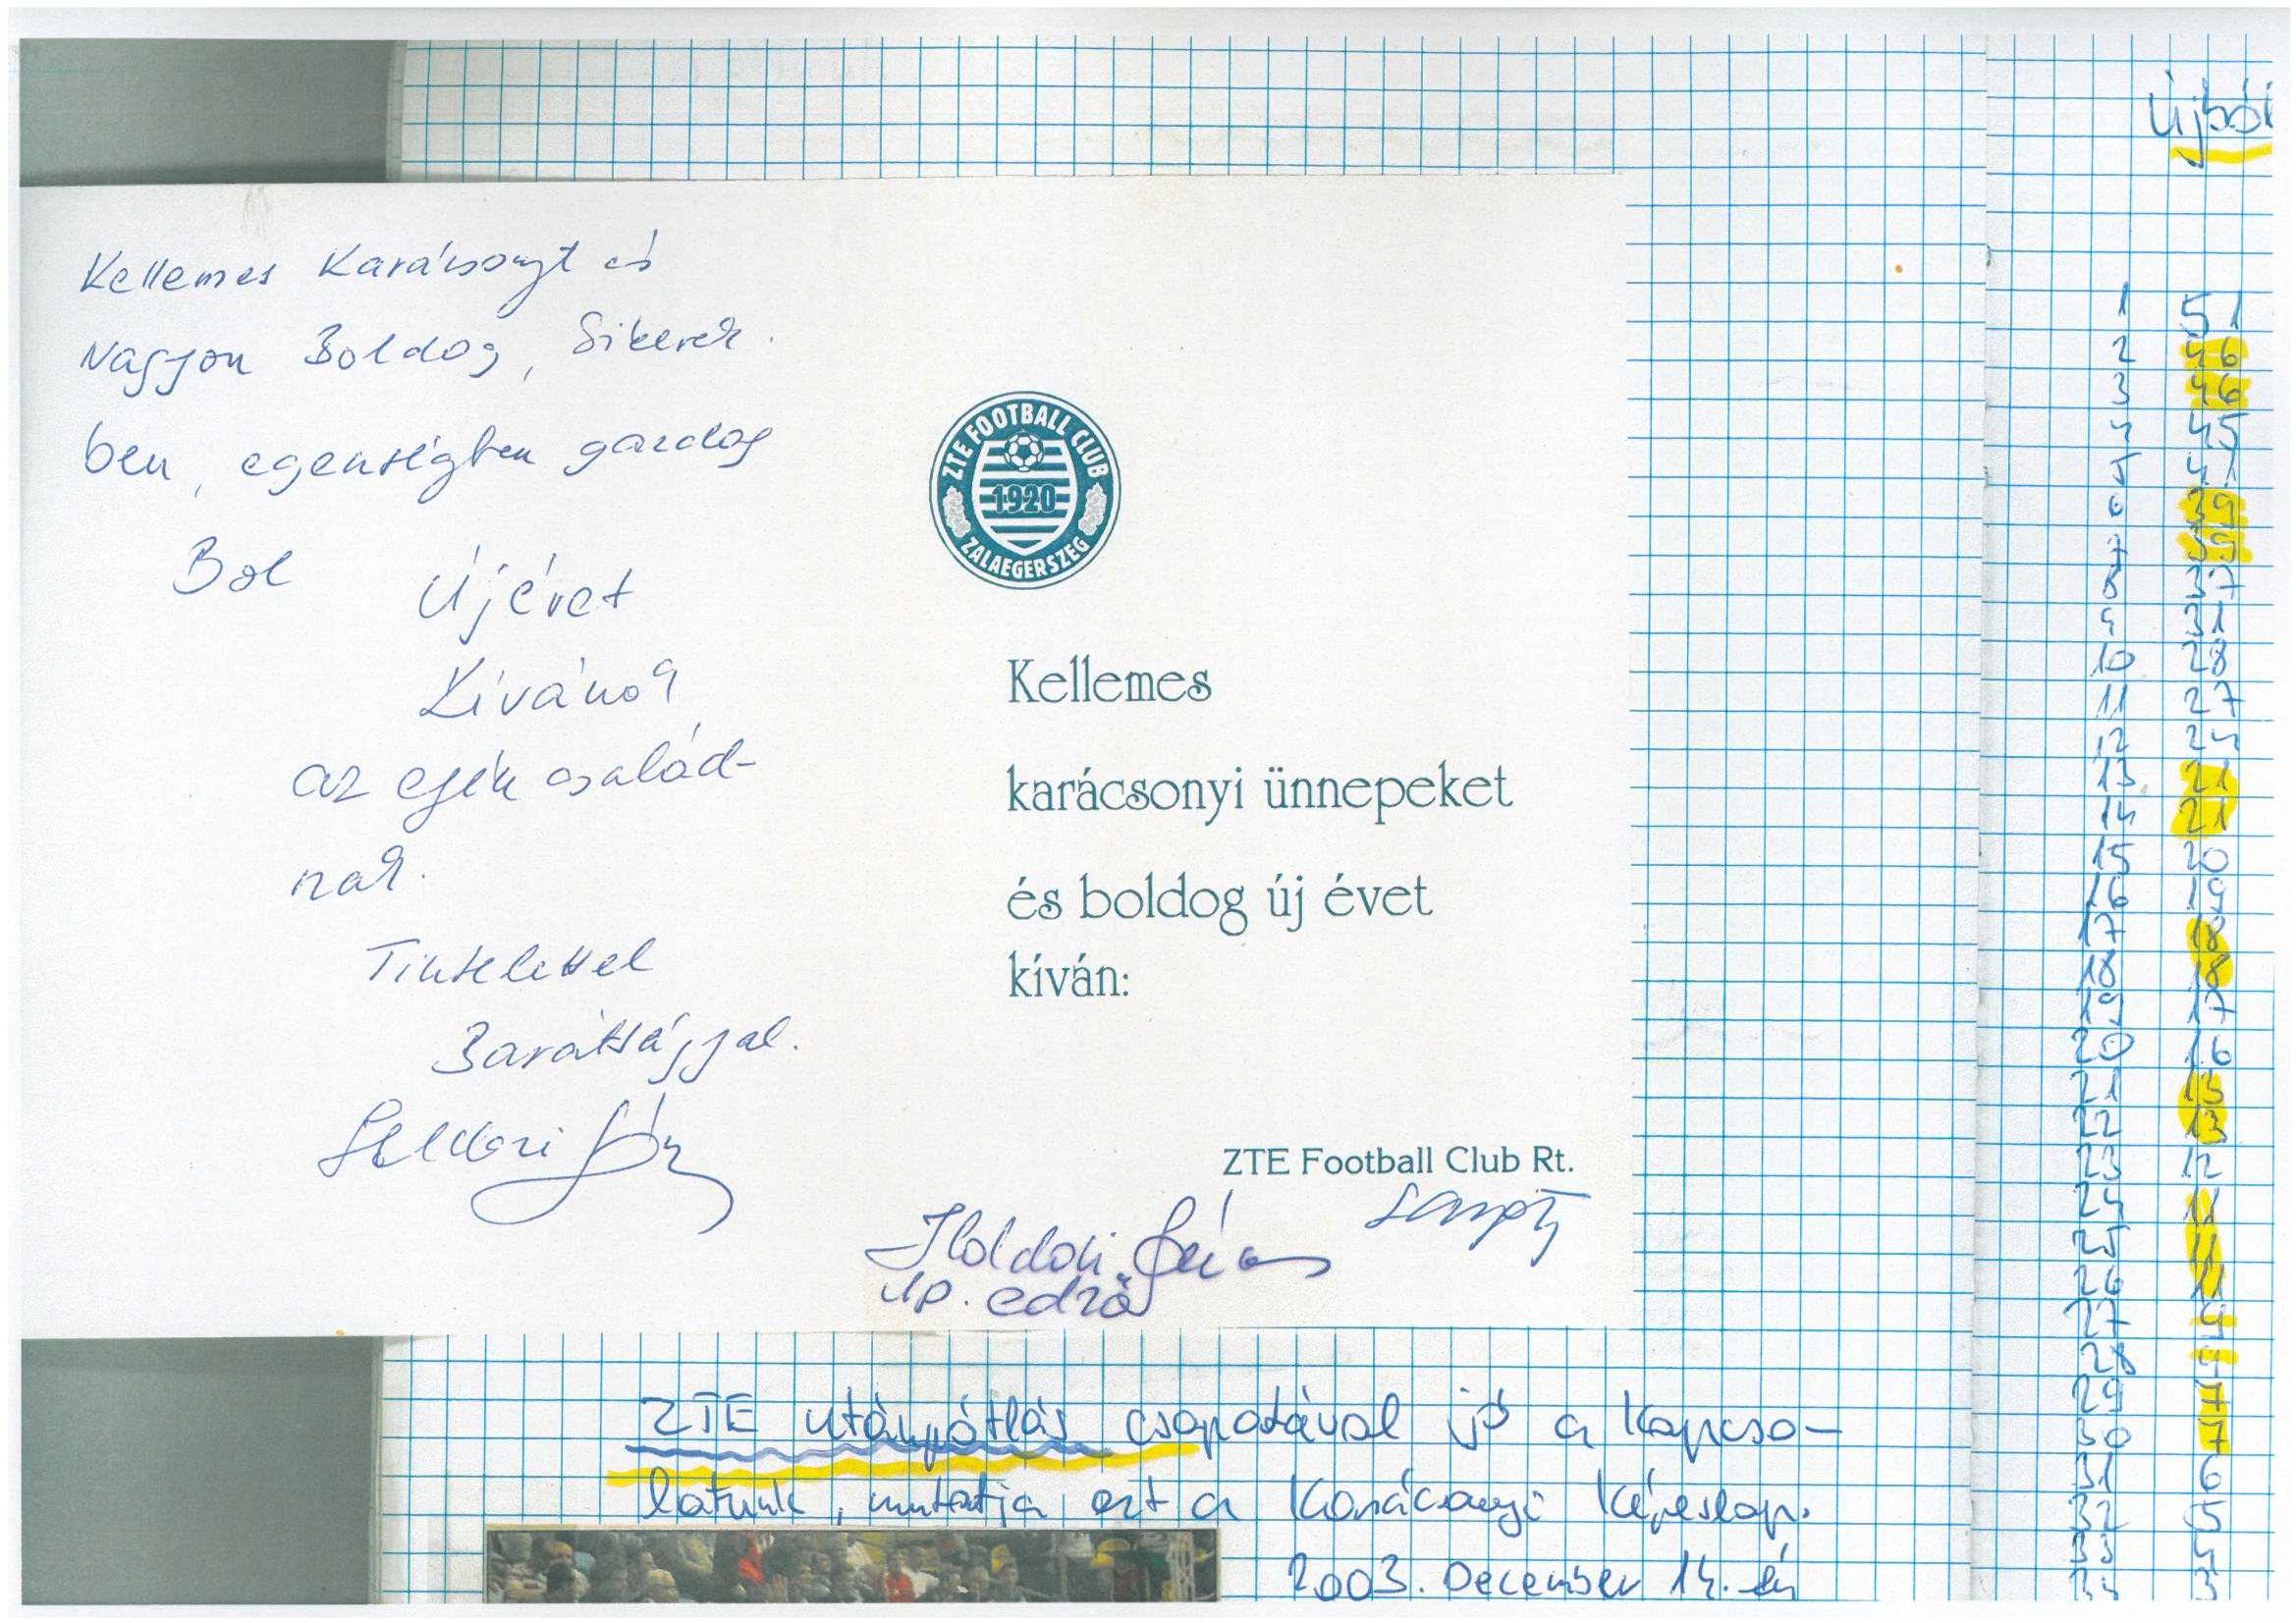 Kellemes Karácsonyt és
Nagyon Boldog, Sikerek
ben, egenségben gazdag
Bol Újévet
Kívánok
az egén család-
nak.
Tisztelettel
Barátsággal.
ZTE FOOTBALL CLUB
1920
ZALAEGERSZEG
Kellemes
karácsonyi ünnepeket
és boldog új évet
kíván:
ZTE Football Club Rt.
up. edző
ZTE utánpótlás csapatával jó a kapcso-
latunk, mutatja ezt a Karácsonyi Képeslap.
2003. December 14.-én
Újból
1 51
2 46
3 46
4 45
5
6 39
7 39
8 37
9 31
10 28
11 27
12 24
13 21
14 21
15 20
16 19
17 18
18 18
19 17
20 16
21 13
22 13
23 12
24 11
25 11
26 11
27 9
28 9
29 7
30 7
31 6
32 5
33
34 3